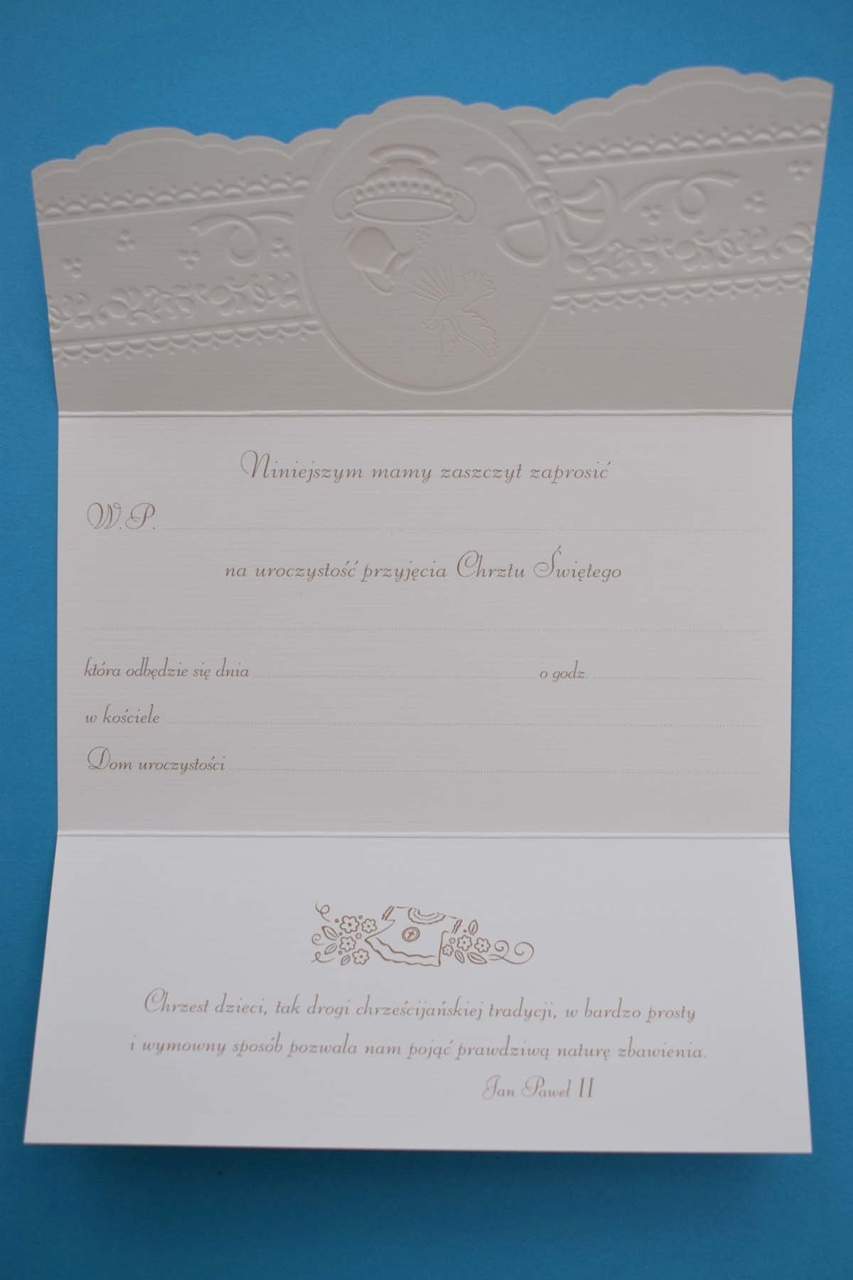 Niniejszym mamy zaszczyt zaprosić
W.P.
na uroczystość przyjęcia Chrztu Świętego
która odbędzie się dnia o godz.
w kościele
Dom uroczystości
Chrzest dzieci, tak drogi chrześcijańskiej tradycji, w bardzo prosty
i wymowny sposób pozwala nam pojąć prawdziwą naturę zbawienia.
Jan Paweł II